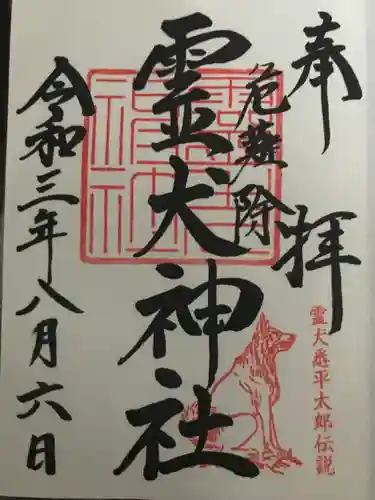 奉拝
霊犬悉平太郎伝説
危難除
霊犬神社
令和三年八月六日